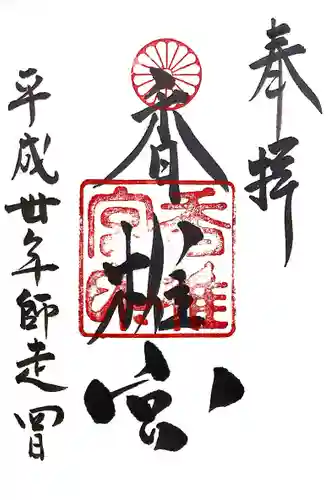 奉拝
香椎宮
香椎
宮印
平成廿年師走四日